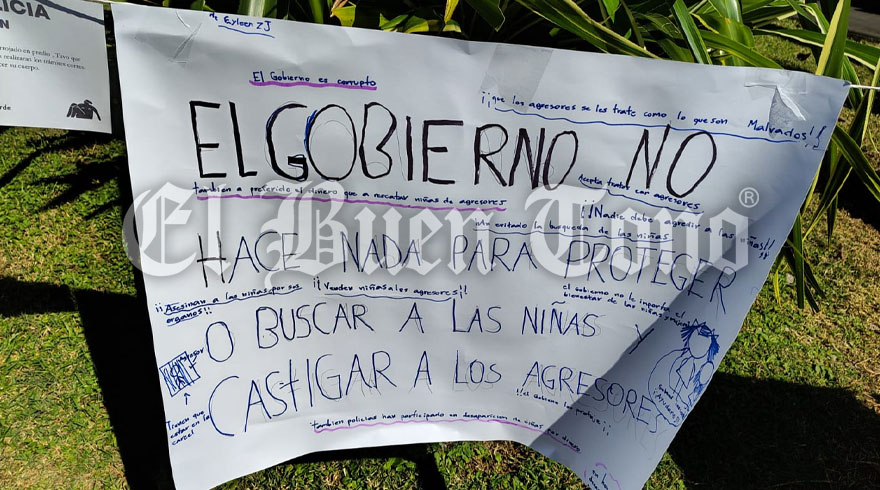 LICIA
rrojado en predio. Tuvo que
cer su cuerpo.
rde
de Eyleen ZJ
El Gobierno es corrupto
¡¡que los agresores se les trate como lo que son Malvados!!
EL GOBIERNO NO
también a preferido el dinero que a rescatar niñas de agresores
Acepta tratos con agresores
¡¡Nadie debe agredir a las niñas!!
an evitado la busqueda de las niñas
El Buen Tono®
HACE NADA PARA PROTEGER
¡¡Asesinan a las niñas por sus organos!!
¡¡Venden niñas a los agresores!!
el gobierno no le importa el
bienestar de las niñas
O BUSCAR A LAS NIÑAS Y
CASTIGAR A LOS AGRESORES
Tienen que
estar en la
carcel
¡¡el Gobierno los protege!!
también policias han participado en desaparicion de niñas por dinero